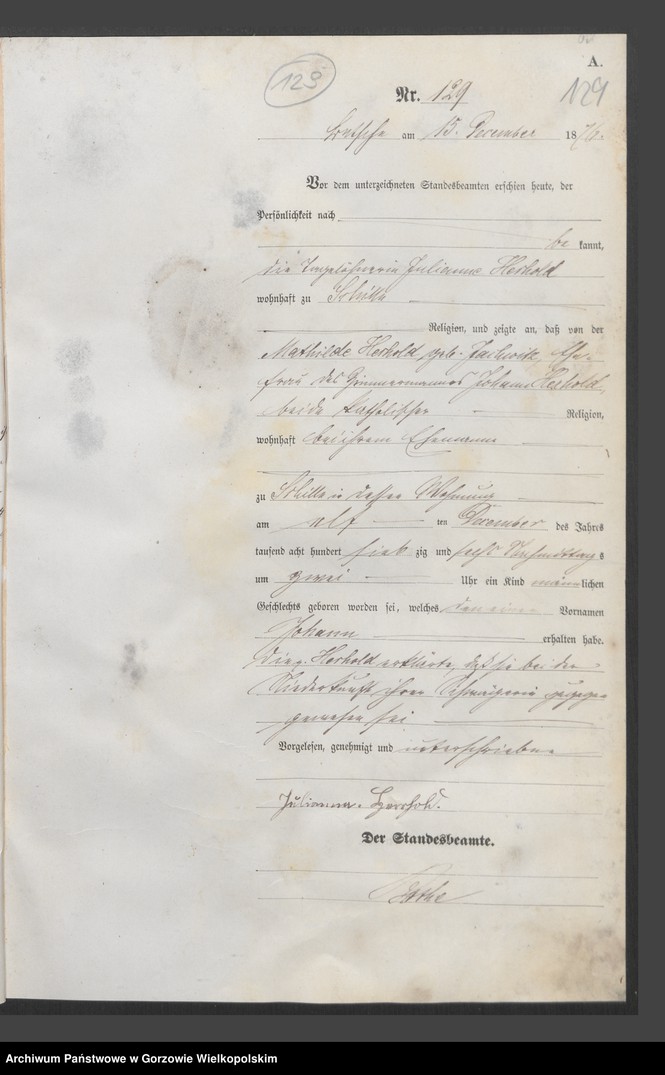 A.
125
Nr. 129
129
am 15. December 1876.
Vor dem unterzeichneten Standesbeamten erschien heute, der
Persönlichkeit nach
be kannt,
die Tagelöhnerin Julianna Herhold
wohnhaft zu
Religion, und zeigte an, daß von der
Mathilde Herhold geb. Ehe-
frau des Zimmermannes Johann Herhold,
beide katholischer Religion,
wohnhaft bei ihrem Ehemanne
zu in dessen Wohnung
am elf ten December des Jahres
tausend acht hundert sieb zig und sechs Nachmittag s
um zwei Uhr ein Kind männ lichen
Geschlechts geboren worden sei, welches den einen Vornamen
Johann erhalten habe.
Die p. Herhold erklärte, daß sie bei der
Niederkunft ihrer Schwägerin zugegen
gewesen sei
Vorgelesen, genehmigt und unterschrieben
Julianna Herrhold.
Der Standesbeamte.
Archiwum Państwowe w Gorzowie Wielkopolskim